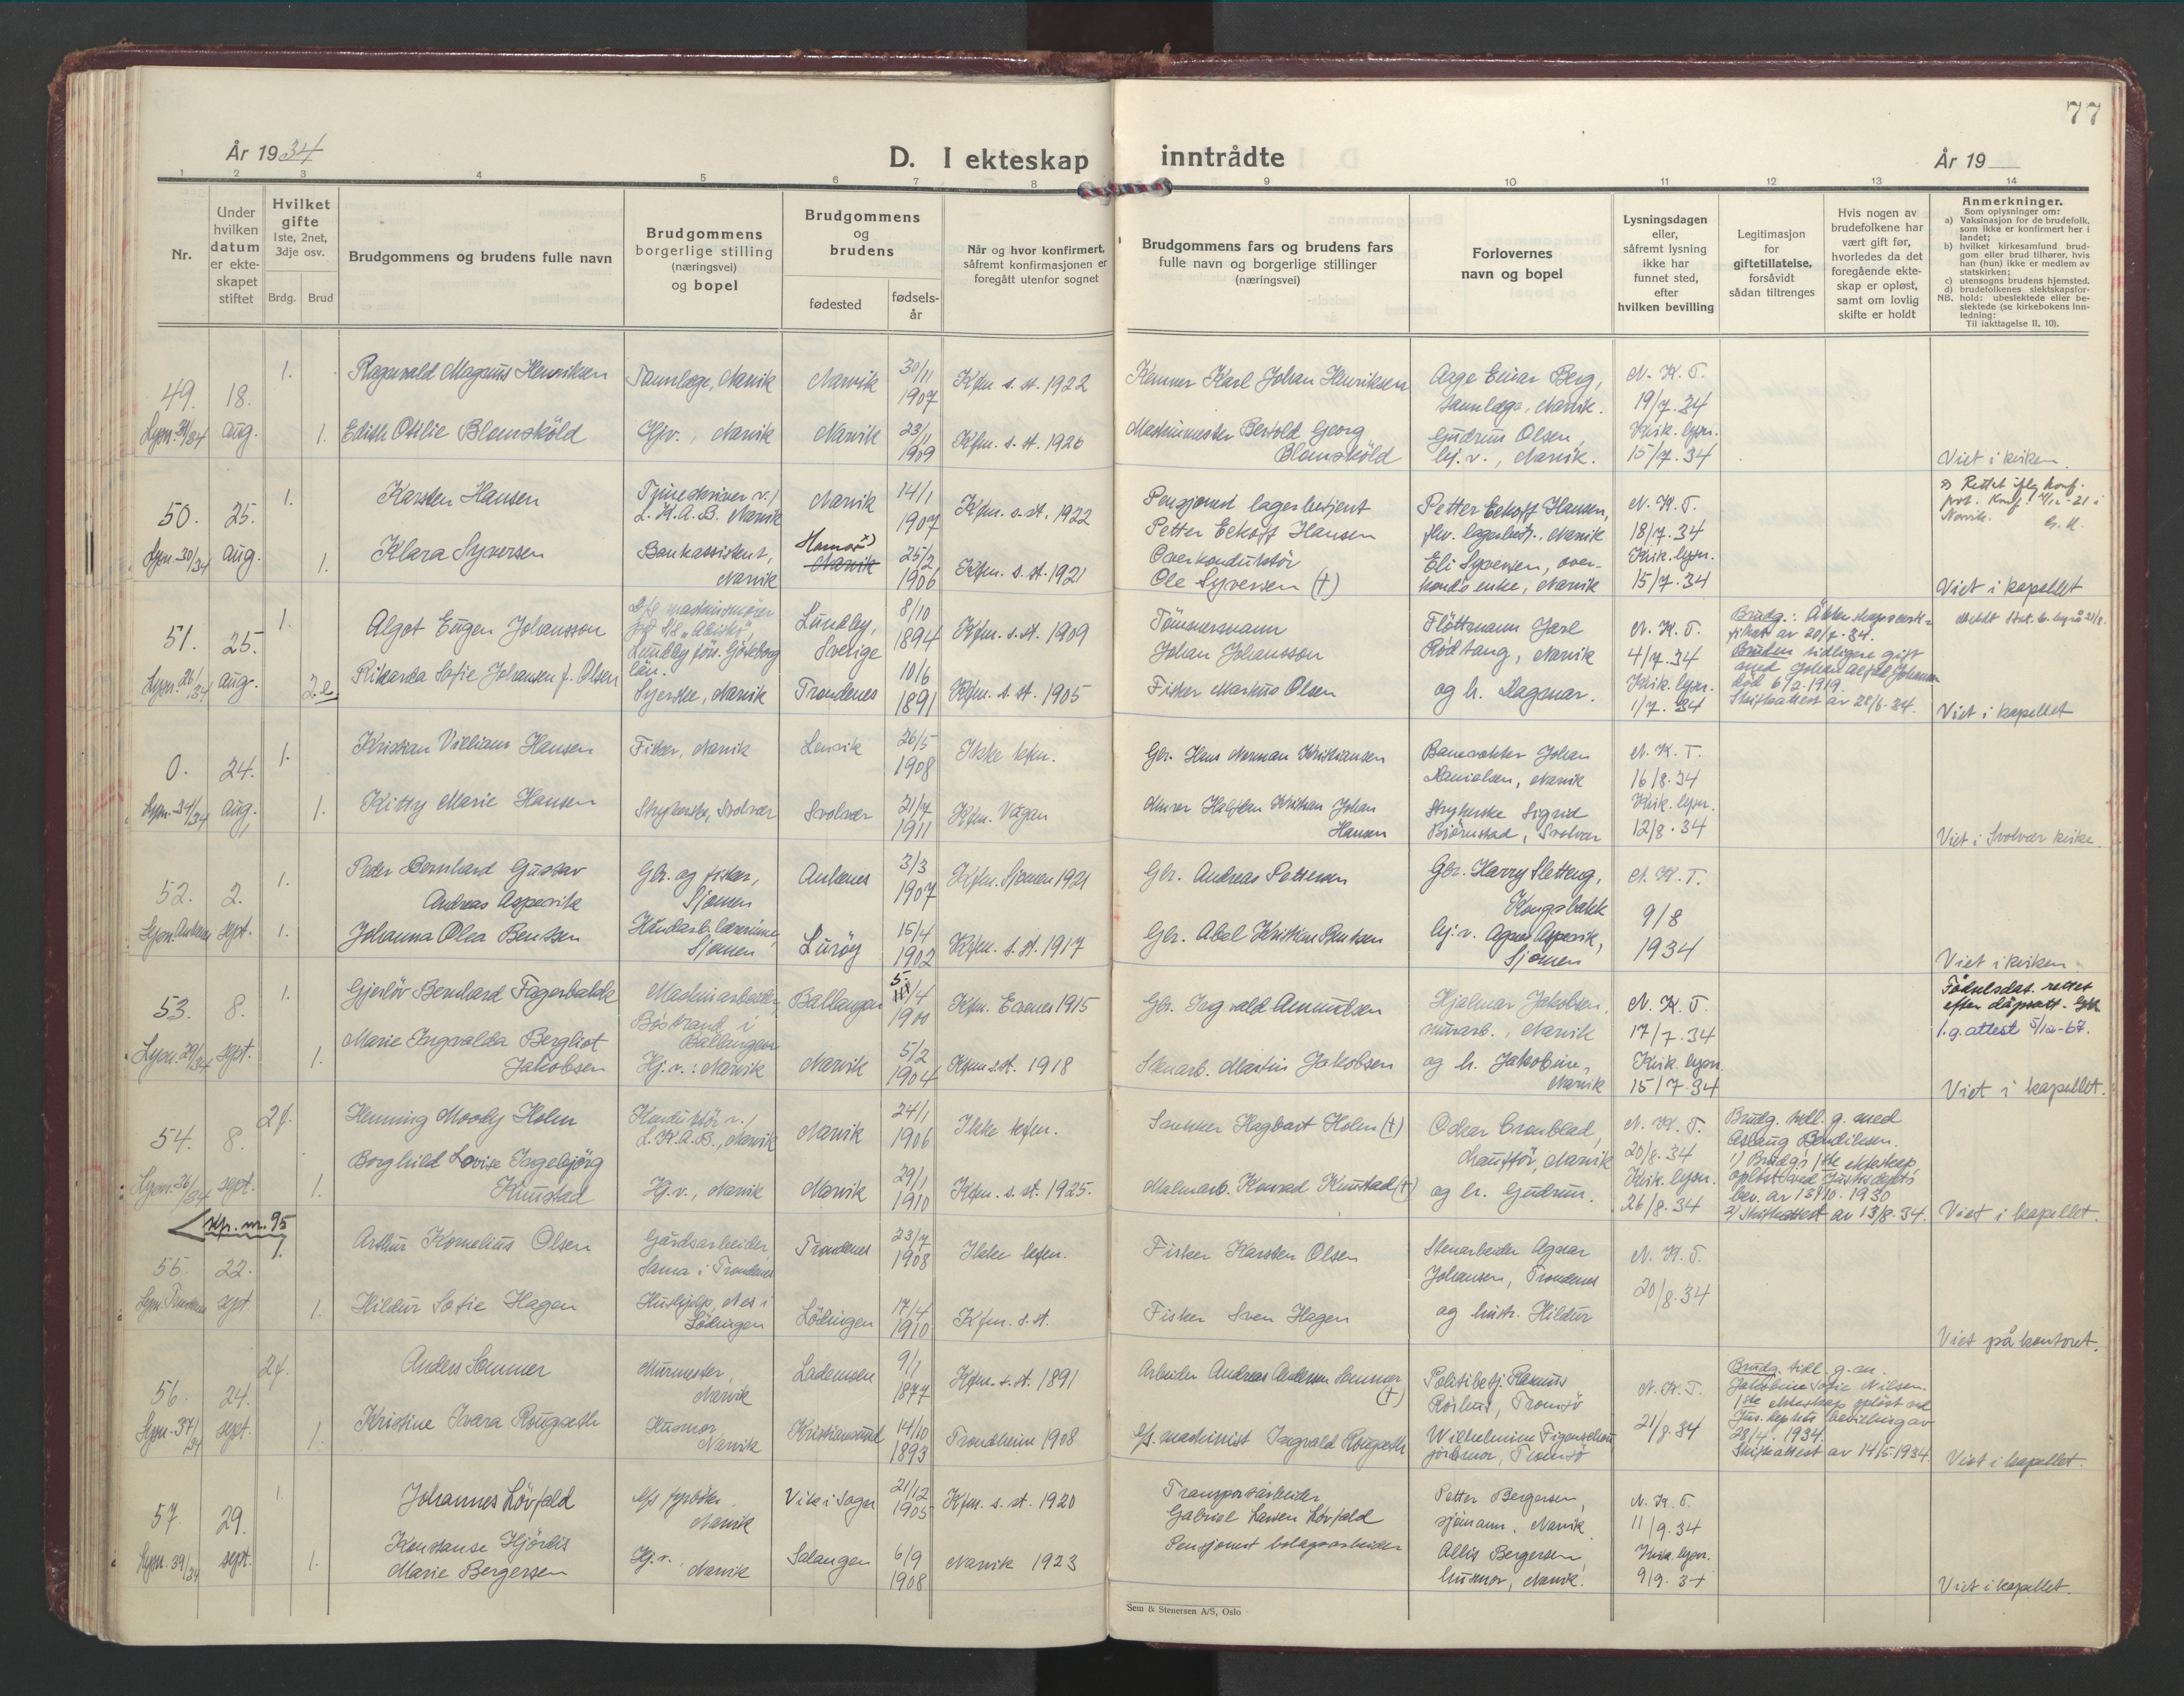 77
År 1934
D. I ekteskap inntrådte
År 19
1 2 3 4 5 6 7 8 9 10 11 12 13 14
Nr.
Under hvilken datum er ekteskapet stiftet
Hvilket gifte
1ste, 2net, 3dje osv.
Brdg. Brud
Brudgommens og brudens fulle navn
Brudgommens borgerlige stilling (næringsvei) og bopel
Brudgommens og brudens
fødested
fødselsår
Når og hvor konfirmert, såfremt konfirmasjonen er foregått utenfor sognet
Brudgommens fars og brudens fars fulle navn og borgerlige stillinger (næringsvei)
Forlovernes navn og bopel
Lysningsdagen eller, såfremt lysning ikke har funnet sted, efter hvilken bevilling
Legitimasjon for giftetillatelse, forsåvidt sådan tiltrenges
Hvis nogen av brudefolkene har vært gift før, hvorledes da det foregående ekteskap er opløst, samt om lovlig skifte er holdt
Anmerkninger.
Som oplysninger om:
a) Vaksinasjon for de brudefolk, som ikke er konfirmert her i landet;
b) hvilket kirkesamfund brudgom eller brud tilhører, hvis han (hun) ikke er medlem av statskirken;
c) utensogns brudens hjemsted.
d) brudefolkenes slektskapsforhold: ubeslektede eller beslektede (se kirkebokens innledning:
NB.
Til iakttagelse II, 10).
49. 18. aug. 1. Ragnvald Magnus Henriksen Tannlæge, Narvik Narvik 30/11 1907 Kfm. s. st. 1922 Kemner Karl Johan Henriksen Aage Einar Berg, tannlæge, Narvik. N. K. T. 19/7.34
1. Edith Otilie Blomsköld Hjv., Narvik Narvik 23/11 1909 Kfm. s. st. 1926 Maskinmester Bertold Georg Blomsköld Gudrun Olsen, hj. v., Narvik. Kirk. lysn. 15/7.34 Viet i kirken.
50. 25. aug. 1. Karsten Hansen L.K.A.B. Narvik Narvik 14/1 1907 Kfm. s. st. 1922 Pensjonert lagerbetjent Petter Eckoff Hansen Petter Eckoff Hansen, Narvik N. K. T. 18/7.34
Lysn. 30/34 1. Klara Syversen Bankassistent, Narvik Hamar x) Narvik 25/2 1906 Kfm. s. st. 1921 Overkonduktör Ole Syversen (†) Eli Syversen, overkonds enke, Narvik Kirk. lysn. 15/7.34 Viet i kapellet
51. 25. aug. 1. Algot Eugen Johansson Lundby, Sverige 8/10 1894 Kfm. s. st. 1909 Tömmermann Johan Johansson Flöttmann Jarl Rödtang, Narvik N. K. T. 4/7.34
Lysn. 26/34 2.e Rikarda Sofie Johansen f. Olsen Syerske, Narvik Trondenes 10/6 1891 Kfm. s. st. 1905 Fisker Markus Olsen og h. Dagmar. Kirk. lysn. 1/7.34 Bruden tidligere gift med Johan Alfred Johansen död 6/2.1919. Skifteattest av 28/6.34. Viet i kapellet
0. 24. aug. 1. Kristian Villiam Hansen Fisker, Narvik Lenvik 26/5 1908 Ikke kfm. Gbr. Hans Norman Kristiansen Banevokter Johan Danielsen, Narvik N. K. T. 16/8.34
Lysn. 34/34 1. Kitty Marie Hansen Strykerske, Svolvær Svolvær 21/7 1911 Kfm. Vågan Murer Halfdan Kristian Johan Hansen Strykerske Sigrid Björnstad, Svolvær Kirk. lysn. 12/8.34 Viet i Svolvær kirke.
52. 2. sept. 1. Peder Bernhard Gustav Andreas Aspevik Gbr. og fisker, Sjomen Ankenes 3/3 1907 Kfm. Sjomen 1921 Gbr. Andreas Pettersen Gbr. Harry Sletteng, Kongsbakk N. K. T. 9/8 1934
Lysn. Ankenes 1. Johanna Olea Bentsen Håndarb.lærerinne, Sjomen Luröy 15/4 1902 Kfm. s. st. 1917 Gbr. Abel Kristian Bentsen hj. v. Agnes Aspevik, Sjomen Viet i kirken.
53. 8. sept. 1. Gjerlöv Bernhard Fagerbakk Maskinarbeider, Böstrand i Ballangen Ballangen 5/4 1900 Kfm. Evenes 1915 Gbr. Ingvald Amundsen Hjalmar Jakobsen, murarb., Narvik N. K. T. 17/7.34 Födselsdat. rettet efter dåpsatt.
1.g. attest 5/12-67.
Lysn. 29/34 1. Marie Ingvalda Bergliot Jakobsen Hj. v.: Narvik Narvik 5/2 1904 Kfm s. st. 1918 Stenarb. Martin Jakobsen og h. Jakobine, Narvik Kirk. lysn. 15/7.34 Viet i kapellet.
54. 8. sept. 2f. Henning Moody Holm Konduktör v/ L.K.A.B., Narvik Narvik 24/1 1906 Ikke kfm. Snekker Hagbart Holm (†) Oskar Cronblad, Narvik N. K. T. 20/8.34 Brudg. tidl. g. med Aslaug Bendiksen.
Lysn. 36/34 1. Borghild Lovise Ingebjörg Knustad Hj. v., Narvik Narvik 29/1 1910 Kfm. s. st. 1925. Malmarb. Konrad Knustad (†) og h. Gudrun. Kirk. lysn. 26/8.34 1) Brudg's 1ste ekteskap oplöst ved Justisdept's bev. av 13/10.1930 2) Skifteattest av 13/8.34. Viet i kapellet.
Kfr. nr. 95
55. 22. sept 1. Arthur Kornelius Olsen Gårdsarbeider, Sama i Trondenes Trondenes 23/7 1908 Ikke kfm. Fisker Karsten Olsen Stenarbeider Agnar Johansen, Trondenes N. K. T. 20/8.34
Lysn. Trondenes 1. Hildur Sofie Hagen Hushjelp, Nes i Lödingen Lödingen 17/4 1910 Kfm. s. st. Fisker Sven Hagen og hustr. Hildur Viet på kontoret.
56. 24. sept. 2f. Anders Sommer Murmester, Narvik Lademoen 9/1 1877 Kfm. s. st. 1891 Arbeider Andreas Andersen Sommer (†) Politibetj. Rasmus Röihus, Tromsö N. K. T. 21/8.34 Brudg. tidl. g. m. Jakobine Sofie Nilsen.
Lysn. 37/34 1. Kristine Ivara Rougseth Husmor Narvik Kristiansund 14/10 1893 Trondheim 1908 maskinist Ingvald Rougseth Wilhelmine Figenschou jordmor, Tromsö 1ste ekteskap oplöst ved Jus.dept's bevilling av 28/4.1934. Skifteattest av 14/5 1934. Viet i kapellet.
57. 29. sept. 1. Johannes Lövfald fyrböter Narvik 21/12 1905 Kfm. s. st. 1920 Transportarbeider Gabriel Larsen Lövfald Petter Bergersen, sjömann, Narvik N. K. T. 11/9.34
Lysn. 39/34 1. Konstanse Hjördis Marie Bergersen Hj. v., Narvik Salangen 6/9 1908 Narvik 1923 Pensjonert bolagsarbeider Allis Bergersen, husmor, Narvik. Kirk. lysn. 9/9.34 Viet i kapellet.
Sem & Stenersen A/S, Oslo